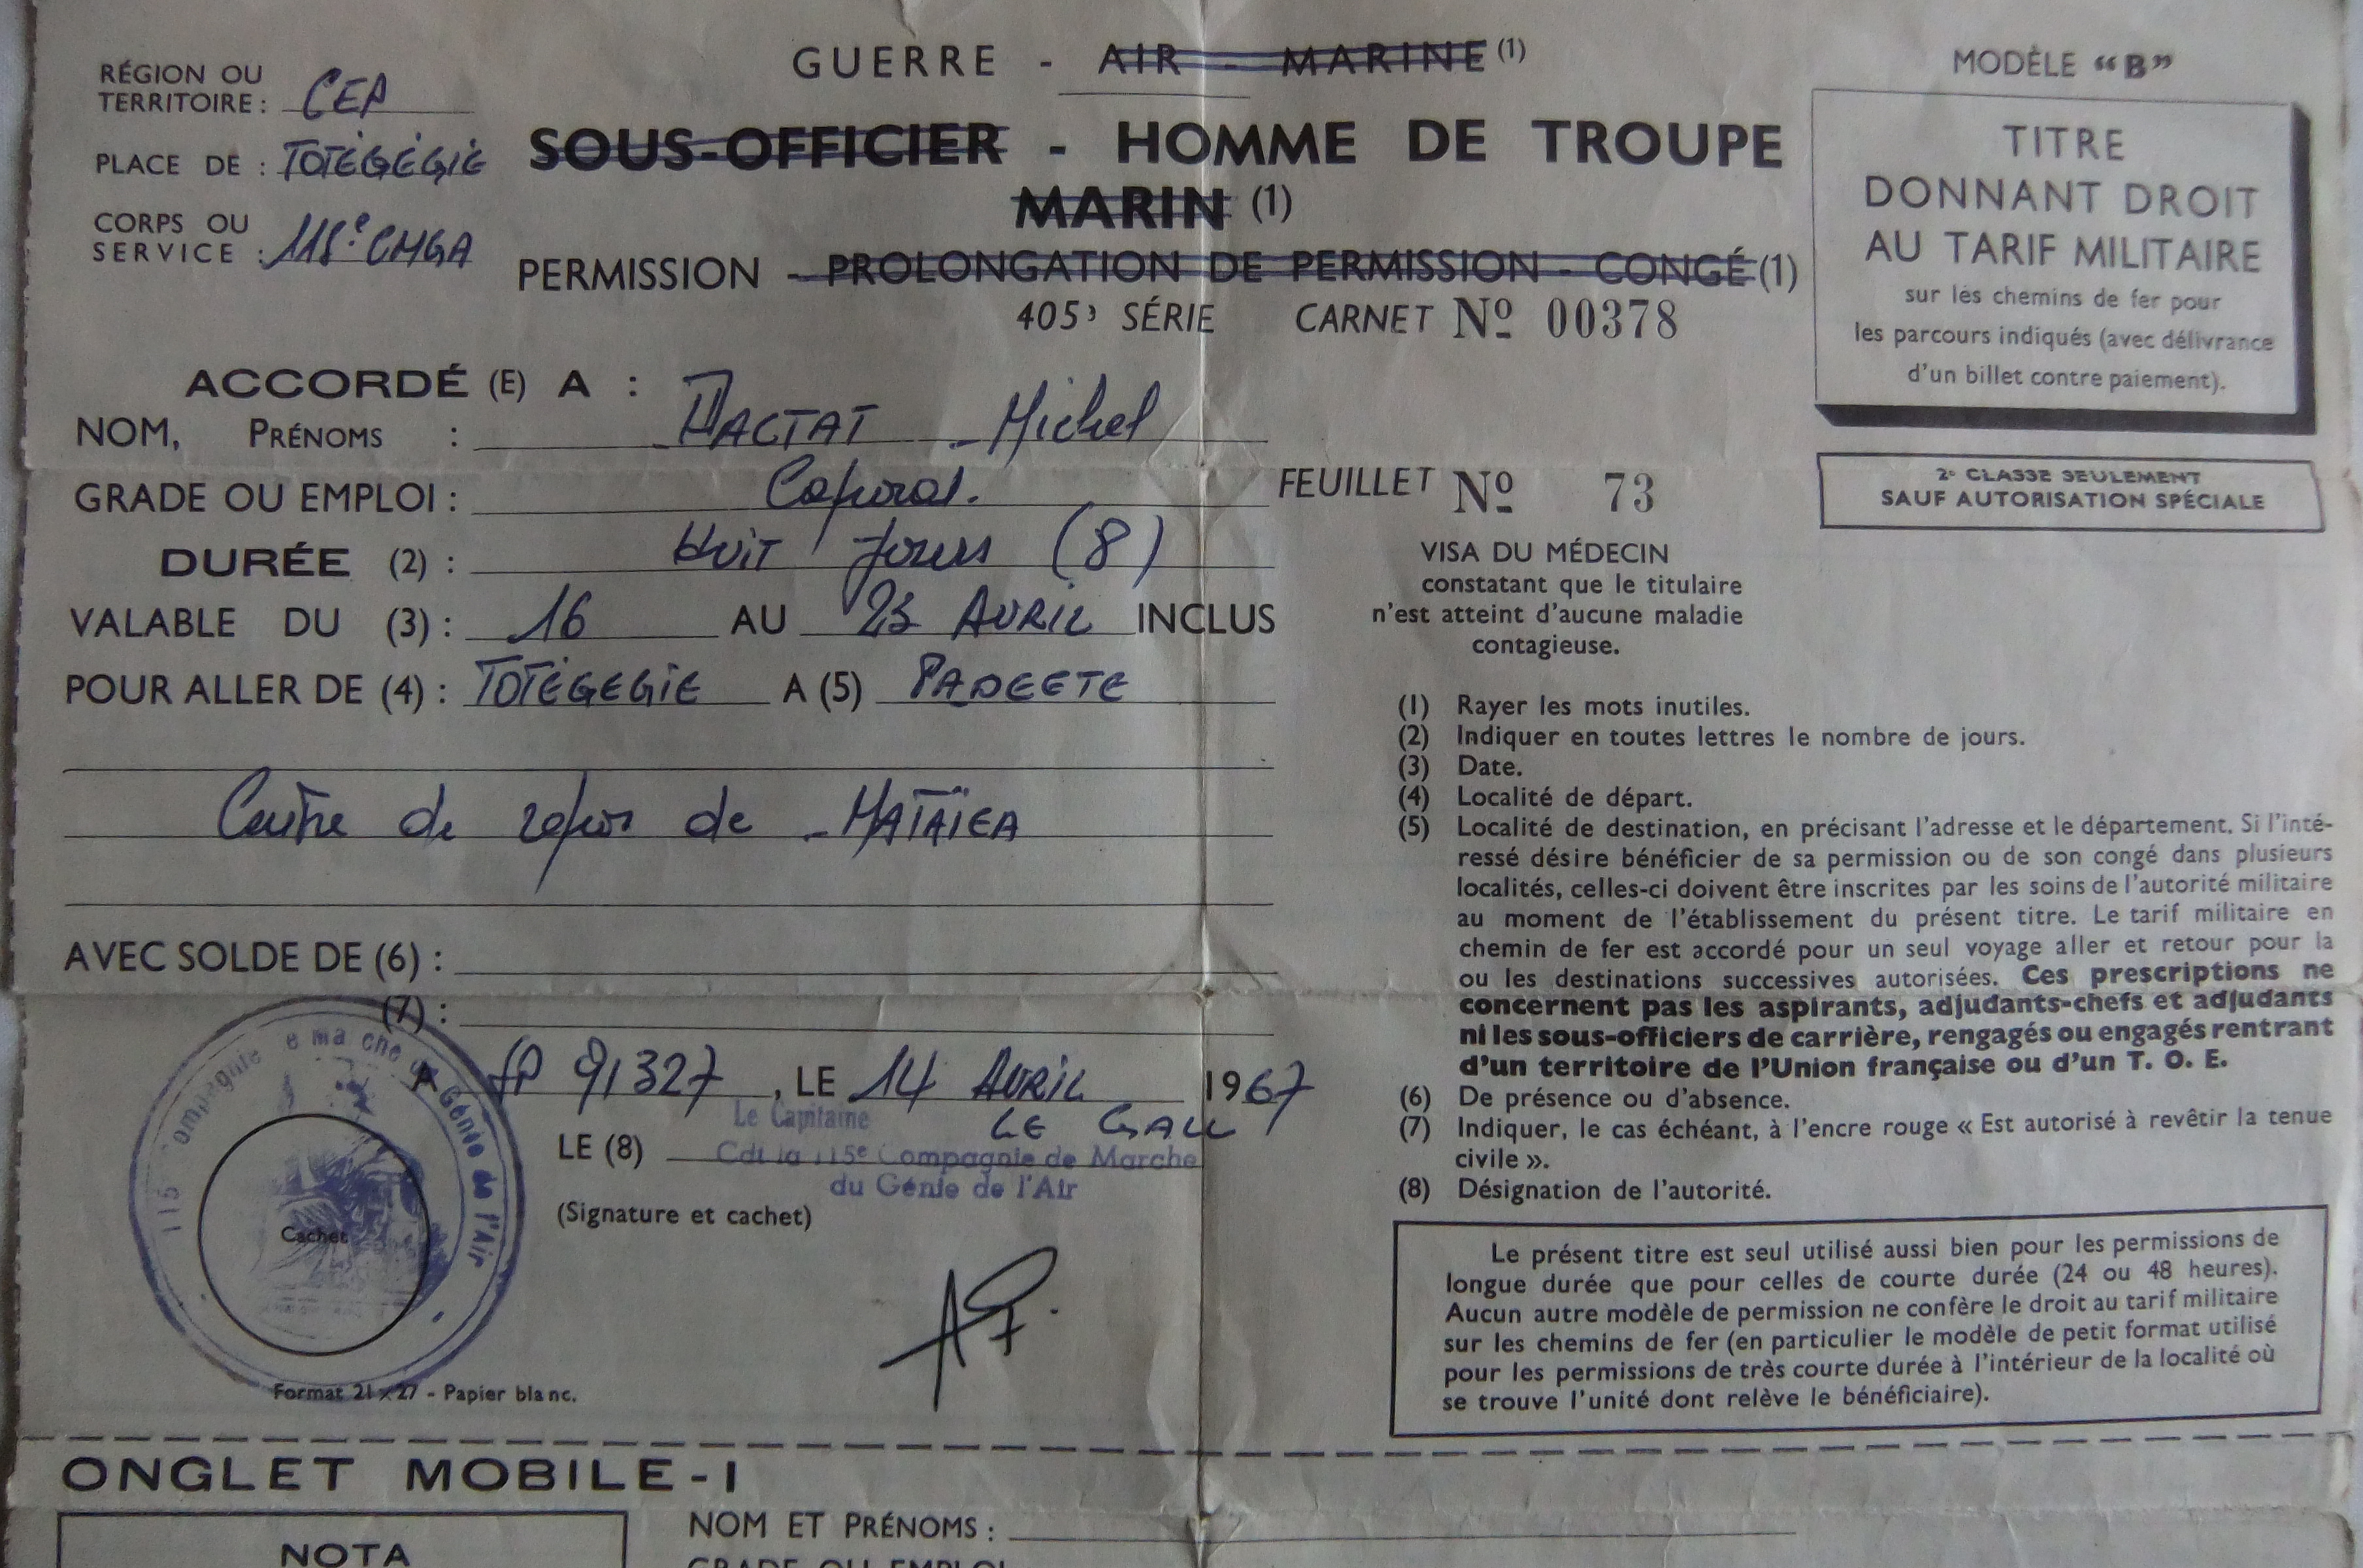 GUERRE - AIR - MARINE (1)
RÉGION OU
TERRITOIRE : CEP
PLACE DE : TOTÉGÉGIE
CORPS OU
SERVICE : 115e CMGA
SOUS-OFFICIER - HOMME DE TROUPE
MARIN (1)
PERMISSION - PROLONGATION DE PERMISSION - CONGÉ (1)
405e SÉRIE CARNET No 00378
MODÈLE “B”
TITRE
DONNANT DROIT
AU TARIF MILITAIRE
sur les chemins de fer pour
les parcours indiqués (avec délivrance
d'un billet contre paiement).
2e CLASSE SEULEMENT
SAUF AUTORISATION SPÉCIALE
ACCORDÉ (E) A :
NOM, PRÉNOMS : Michel
GRADE OU EMPLOI : Caporal.
FEUILLET No 73
DURÉE (2) : Huit Jours (8)
VALABLE DU (3) : 16 AU 23 AVRIL INCLUS
POUR ALLER DE (4) : TOTÉGEGIE A (5) PAPEETE
Centre de repos de MATAÏEA
AVEC SOLDE DE (6) :
(7) :
A SP 91327, LE 14 AVRIL 1967
LE GALL
Le Capitaine
LE (8)
Cdt la 115e Compagnie de Marche
du Génie de l'Air
(Signature et cachet)
115 Compagnie de marche du Génie de l'Air
Cachet
Format 21 x 27 - Papier blanc.
VISA DU MÉDECIN
constatant que le titulaire
n'est atteint d'aucune maladie
contagieuse.
(1) Rayer les mots inutiles.
(2) Indiquer en toutes lettres le nombre de jours.
(3) Date.
(4) Localité de départ.
(5) Localité de destination, en précisant l'adresse et le département. Si l'inté-
ressé désire bénéficier de sa permission ou de son congé dans plusieurs
localités, celles-ci doivent être inscrites par les soins de l'autorité militaire
au moment de l'établissement du présent titre. Le tarif militaire en
chemin de fer est accordé pour un seul voyage aller et retour pour la
ou les destinations successives autorisées. Ces prescriptions ne
concernent pas les aspirants, adjudants-chefs et adjudants
ni les sous-officiers de carrière, rengagés ou engagés rentrant
d'un territoire de l'Union française ou d'un T. O. E.
(6) De présence ou d'absence.
(7) Indiquer, le cas échéant, à l'encre rouge « Est autorisé à revêtir la tenue
civile ».
(8) Désignation de l'autorité.
Le présent titre est seul utilisé aussi bien pour les permissions de
longue durée que pour celles de courte durée (24 ou 48 heures).
Aucun autre modèle de permission ne confère le droit au tarif militaire
sur les chemins de fer (en particulier le modèle de petit format utilisé
pour les permissions de très courte durée à l'intérieur de la localité où
se trouve l'unité dont relève le bénéficiaire).
ONGLET MOBILE-I
NOTA
NOM ET PRÉNOMS :
GRADE OU EMPLOI